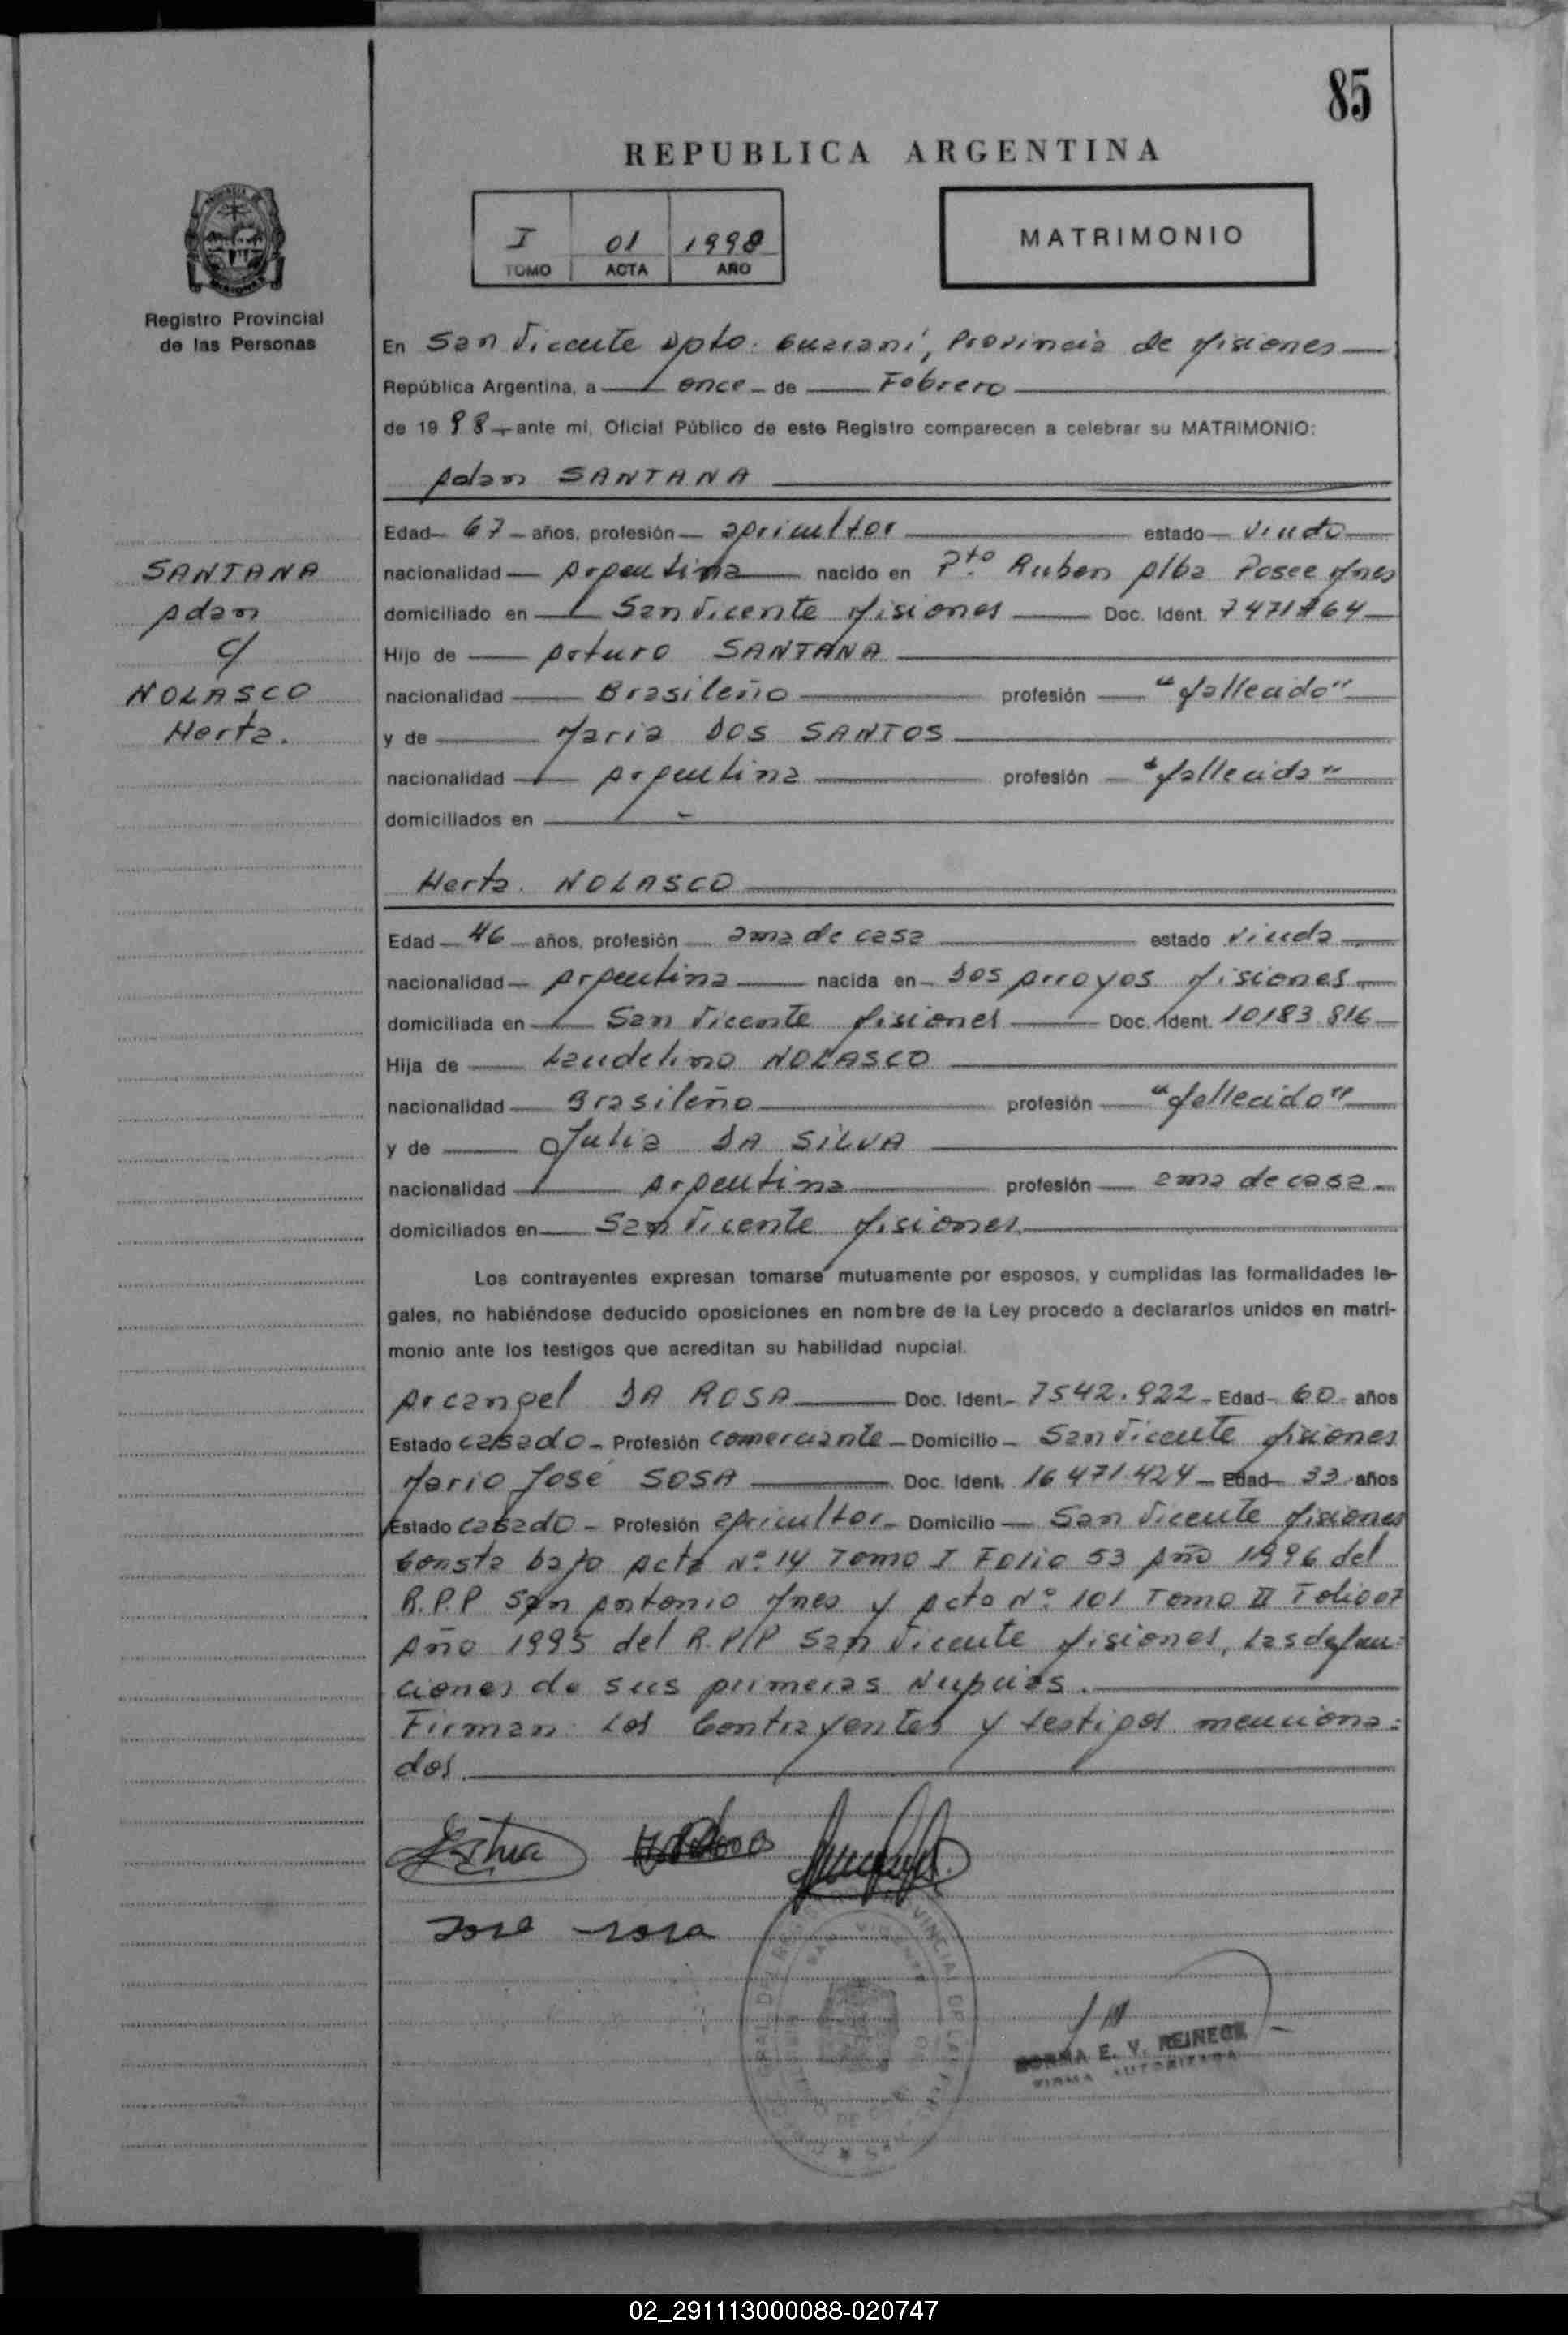 85
REPUBLICA ARGENTINA
I 01 1998
TOMO ACTA AÑO
MATRIMONIO
Registro Provincial
de las Personas
En San Vicente Dpto. Guarani, Provincia de Misiones
República Argentina, a once de Febrero
de 1998 ante mí, Oficial Público de este Registro comparecen a celebrar su MATRIMONIO:
Adan SANTANA
Edad 67 años, profesión agricultor estado viudo
SANTANA
Adan
c/
NOLASCO
Herta.
nacionalidad Argentina nacido en Pto Ruben Alba Posee Mnes
domiciliado en San Vicente Misiones Doc. Ident. 7471764
Hijo de Arturo SANTANA
nacionalidad Brasileño profesión "fallecido"
y de Maria DOS SANTOS
nacionalidad Argentina profesión "fallecida"
domiciliados en -
Herta. NOLASCO
Edad 46 años, profesión ama de casa estado viuda
nacionalidad Argentina nacida en Dos Arroyos Misiones
domiciliada en San Vicente Misiones Doc. Ident. 10183.816
Hija de Laudelino NOLASCO
nacionalidad Brasileño profesión "fallecido"
y de Julia DA SILVA
nacionalidad Argentina profesión ama de casa
domiciliados en San Vicente Misiones
Los contrayentes expresan tomarse mutuamente por esposos, y cumplidas las formalidades le-
gales, no habiéndose deducido oposiciones en nombre de la Ley procedo a declararlos unidos en matri-
monio ante los testigos que acreditan su habilidad nupcial.
Arcangel DA ROSA Doc. Ident. 7542.922 Edad 60 años
Estado casado Profesión comerciante Domicilio San Vicente Misiones
Mario José SOSA Doc. Ident. 16471.424 Edad 33 años
Estado casado Profesión agricultor Domicilio San Vicente Misiones
Consta bajo Acta Nº 14 Tomo I Folio 53 Año 1996 del
R.P.P San Antonio Mnes y Acta Nº 101 Tomo II Folio 07
Año 1995 del R.P.P San Vicente Misiones, las defun=
ciones de sus primeras Nupcias.
Firman: Los Contrayentes y testigos menciona=
dos.
NORMA E. V. REINECK
FIRMA AUTORIZADA
02_291113000088-020747